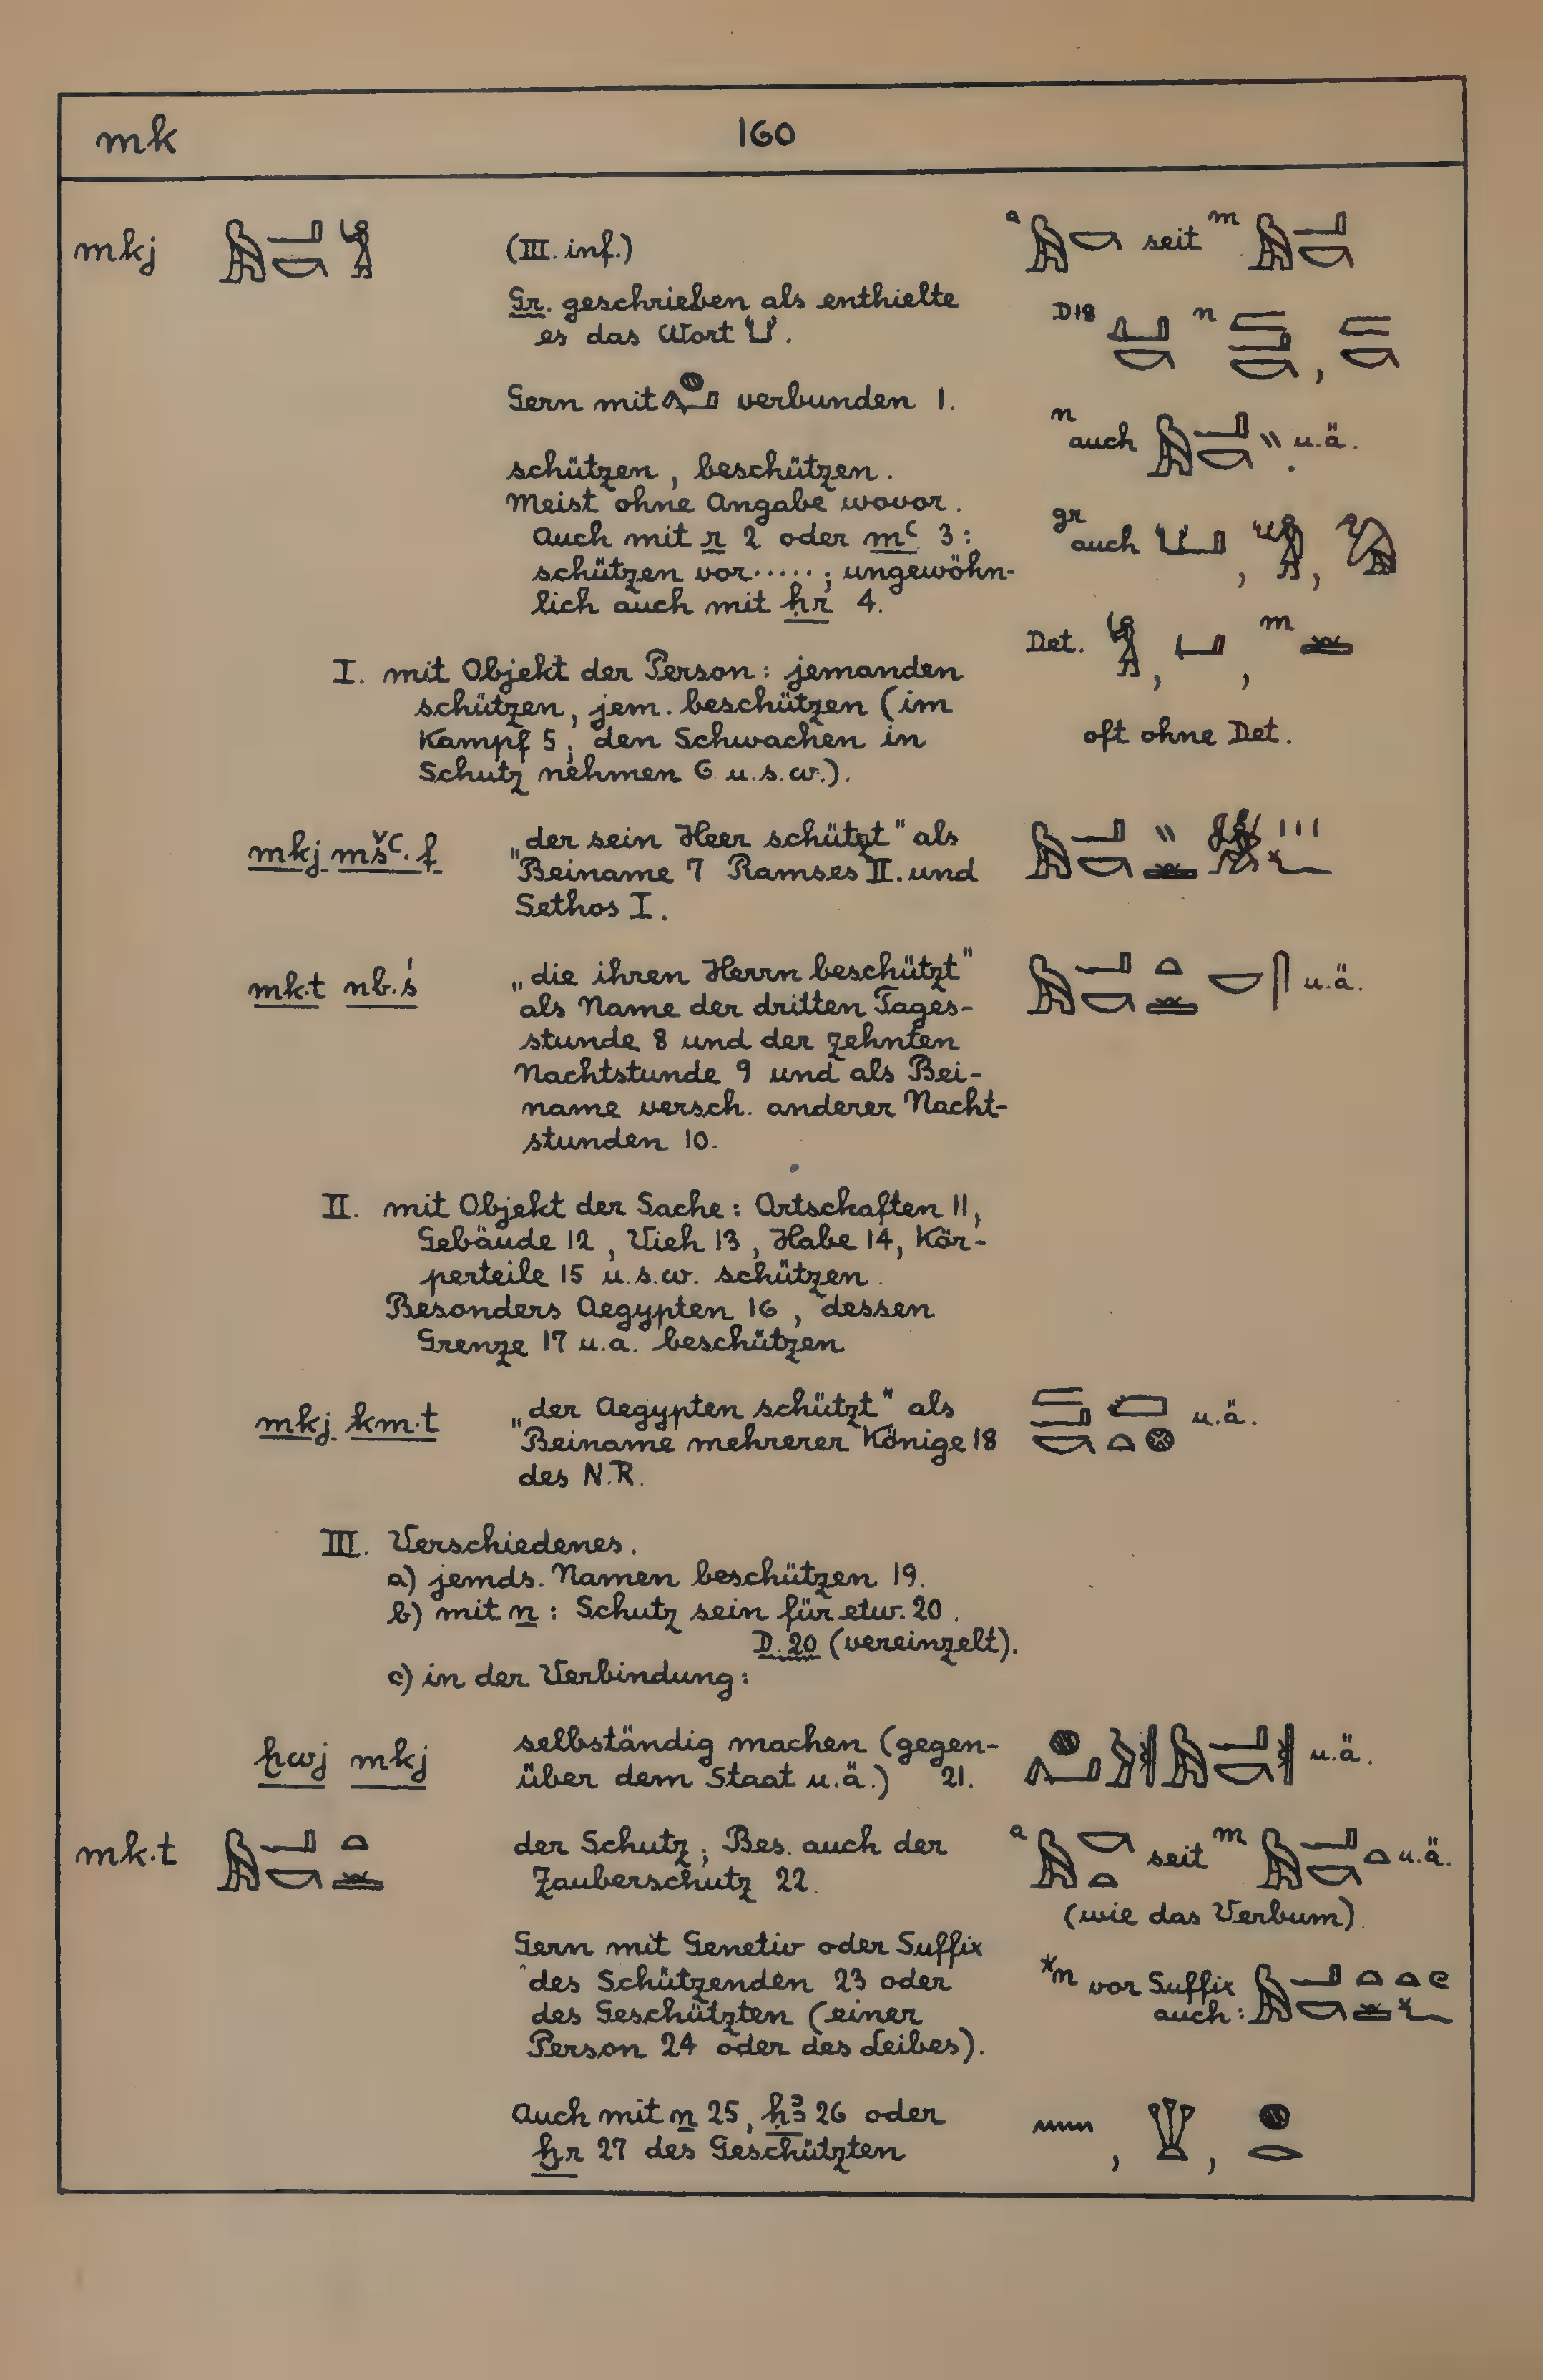 mk 160
mkj (III. inf.)
Gr. geschrieben als enthielte
es das Wort .
Gern mit verbunden 1.
schützen, beschützen.
Meist ohne Angabe wovor.
Auch mit r 2 oder mꜥ 3:
schützen vor.....; ungewöhn-
lich auch mit ḥr 4.
a seit m
D18 n ,
n auch u.ä.
gr auch , ,
Det. , , m
oft ohne Det.
I. mit Objekt der Person: jemanden
schützen, jem. beschützen (im
Kampf 5; den Schwachen in
Schutz nehmen 6 u.s.w.).
mkj mšꜥ.f „der sein Heer schützt" als
Beiname 7 Ramses II. und
Sethos I.
mk.t nb.ś „die ihren Herrn beschützt" u.ä.
als Name der dritten Tages-
stunde 8 und der zehnten
Nachtstunde 9 und als Bei-
name versch. anderer Nacht-
stunden 10.
II. mit Objekt der Sache: Ortschaften 11,
Gebäude 12, Vieh 13, Habe 14, Kör-
perteile 15 u.s.w. schützen.
Besonders Aegypten 16, dessen
Grenze 17 u.a. beschützen
mkj km.t „der Aegypten schützt" als u.ä.
Beiname mehrerer Könige 18
des N.R.
III. Verschiedenes.
a) jemds. Namen beschützen 19.
b) mit n: Schutz sein für etw. 20.
D. 20 (vereinzelt).
c) in der Verbindung:
ḫwj mkj selbständig machen (gegen- u.ä.
über dem Staat u.ä.) 21.
mk.t der Schutz; Bes. auch der
Zauberschutz 22.
a seit m u.ä.
(wie das Verbum).
Gern mit Genetiv oder Suffix
des Schützenden 23 oder
des Geschützten (einer
Person 24 oder des Leibes).
*n vor Suffix
auch:
Auch mit n 25, ḥꜣ 26 oder
ḫr 27 des Geschützten